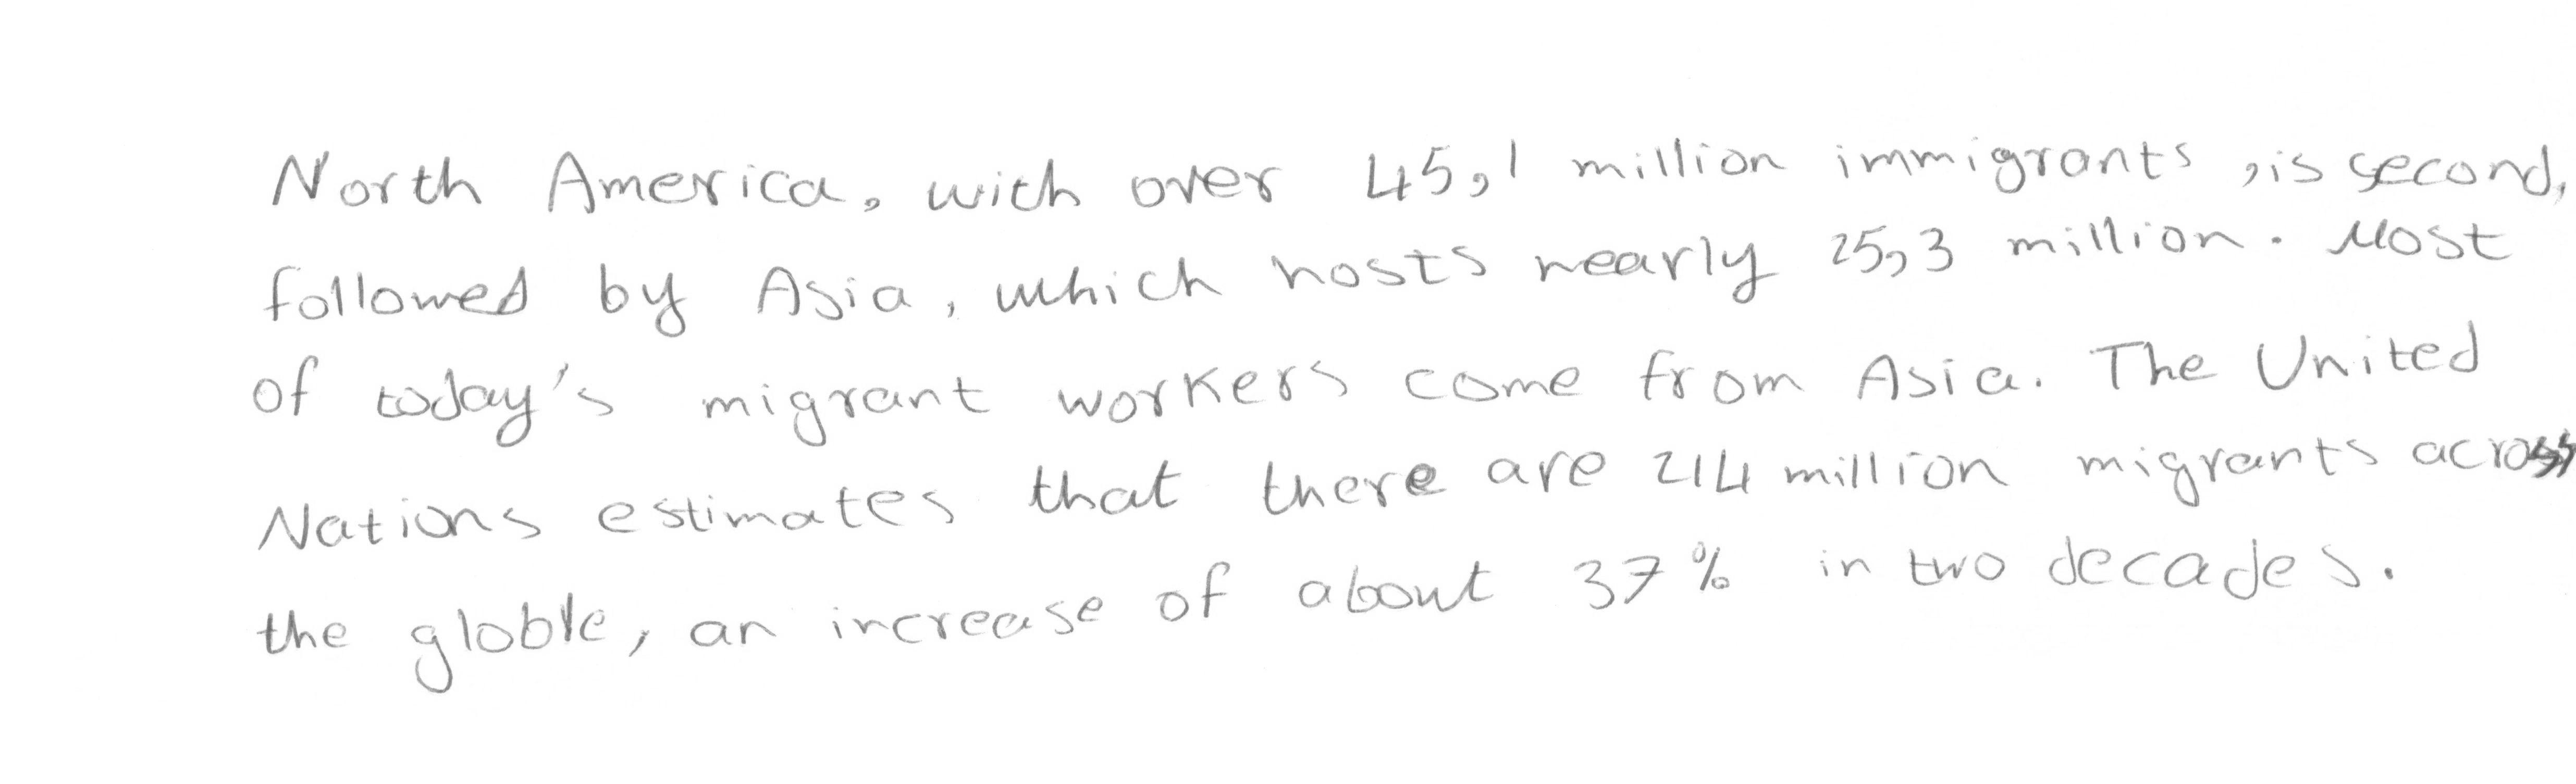 North America, with over 45,1 million immigrants , is second,
followed by Asia, which hosts nearly 25,3 million. Most
of today's migrant workers come from Asia. The United
Nations estimates that there are 214 million migrants across
the globle, an increase of about 37% in two decades.